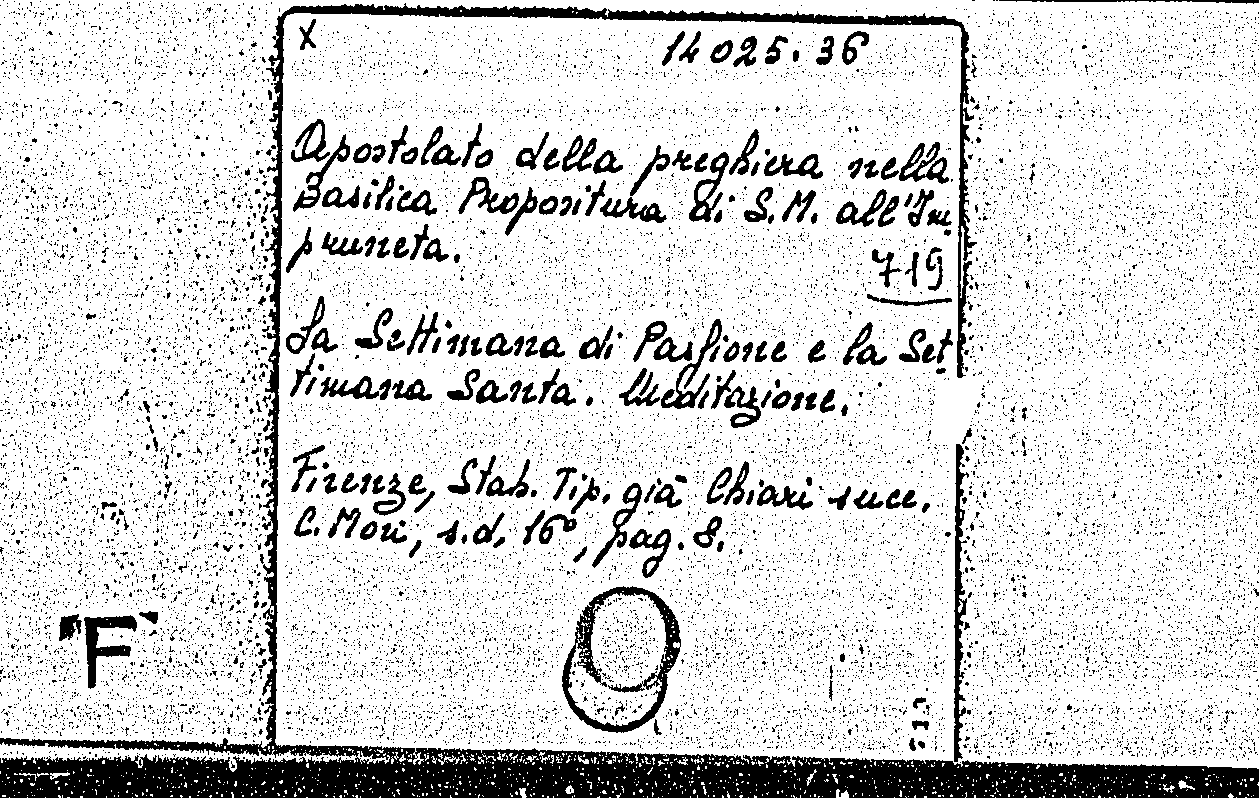 X 14025.36
Apostolato della preghiera nella
Basilica Propositura di S.M. all'Im
pruneta.
719
La Settimana di Passione e la Set
timana Santa. Meditazione.
Firenze, Stab. Tip. già Chiari succ.
C. Mori, s.d. 16°, pag. 8.
"F"